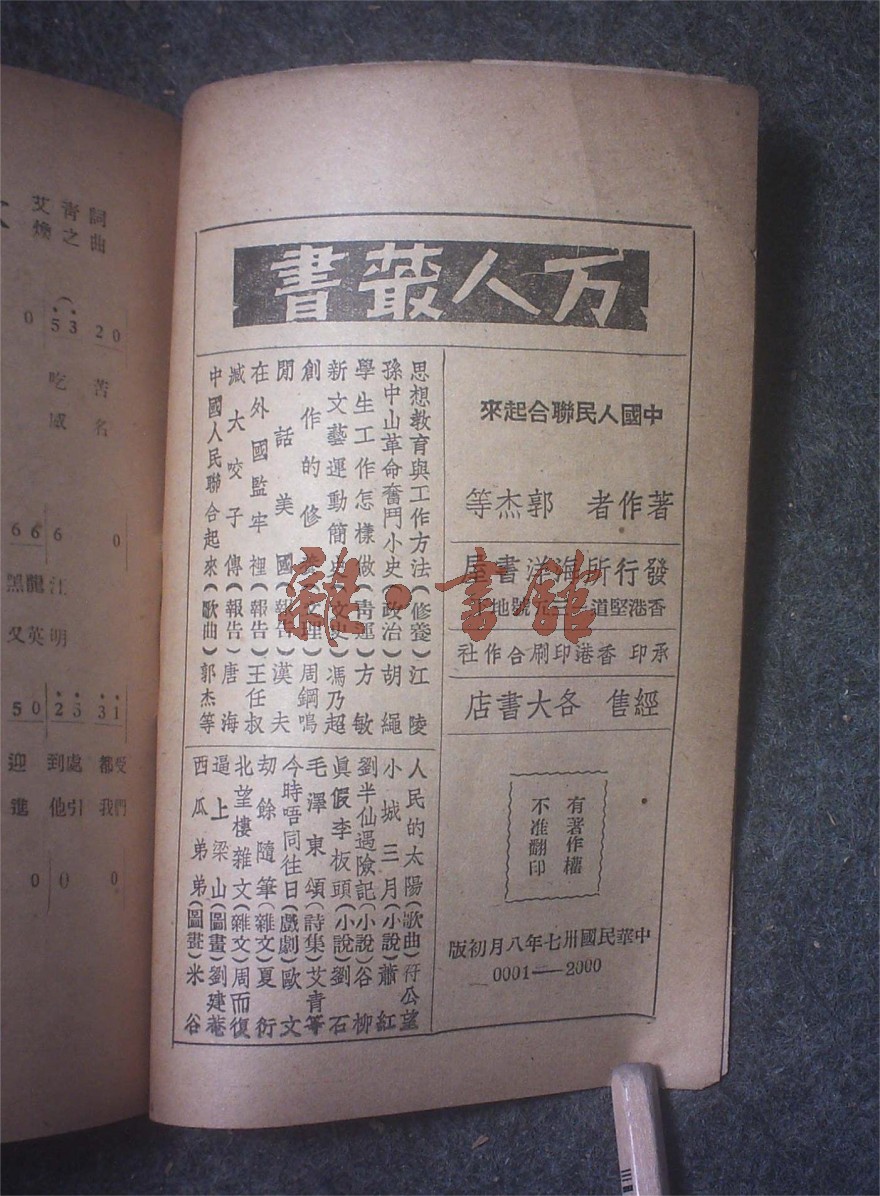 万人叢書
中國人民聯合起來
著作者 郭杰等
發行所海洋書屋
香港堅道一三九號地下
承印 香港印刷合作社
經售 各大書店
有著作權
不准翻印
中華民國卅七年八月初版
0001—2000
思想教育與工作方法(修養)江陵
孫中山革命奮鬥小史(政治)胡繩
學生工作怎樣做(青運)方敏
新文藝運動簡史(文史)馮乃超
創作的修養(文理)周鋼鳴
閒話美國(報告)漢夫
在外國監牢裡(報告)王任叔
臧大咬子傳(報告)唐海
中國人民聯合起來(歌曲)郭杰等
人民的太陽(歌曲)符公望
小城三月(小說)蕭紅
劉半仙遇險記(小說)谷柳
眞假李板頭(小說)劉石
毛澤東頌(詩集)艾青等
今時唔同往日(戲劇)歐文
劫餘隨筆(雜文)夏衍
北望樓雜文(雜文)周而復
逼上梁山(圖畫)劉建菴
西瓜弟弟(圖畫)米谷
雜·書館
艾青詞
煥之曲
0 53 20
吃苦
威名
66 6 0
黑龍江
又英明
50 23 31
迎 到處 都受
進 他引 我們
0 0 0